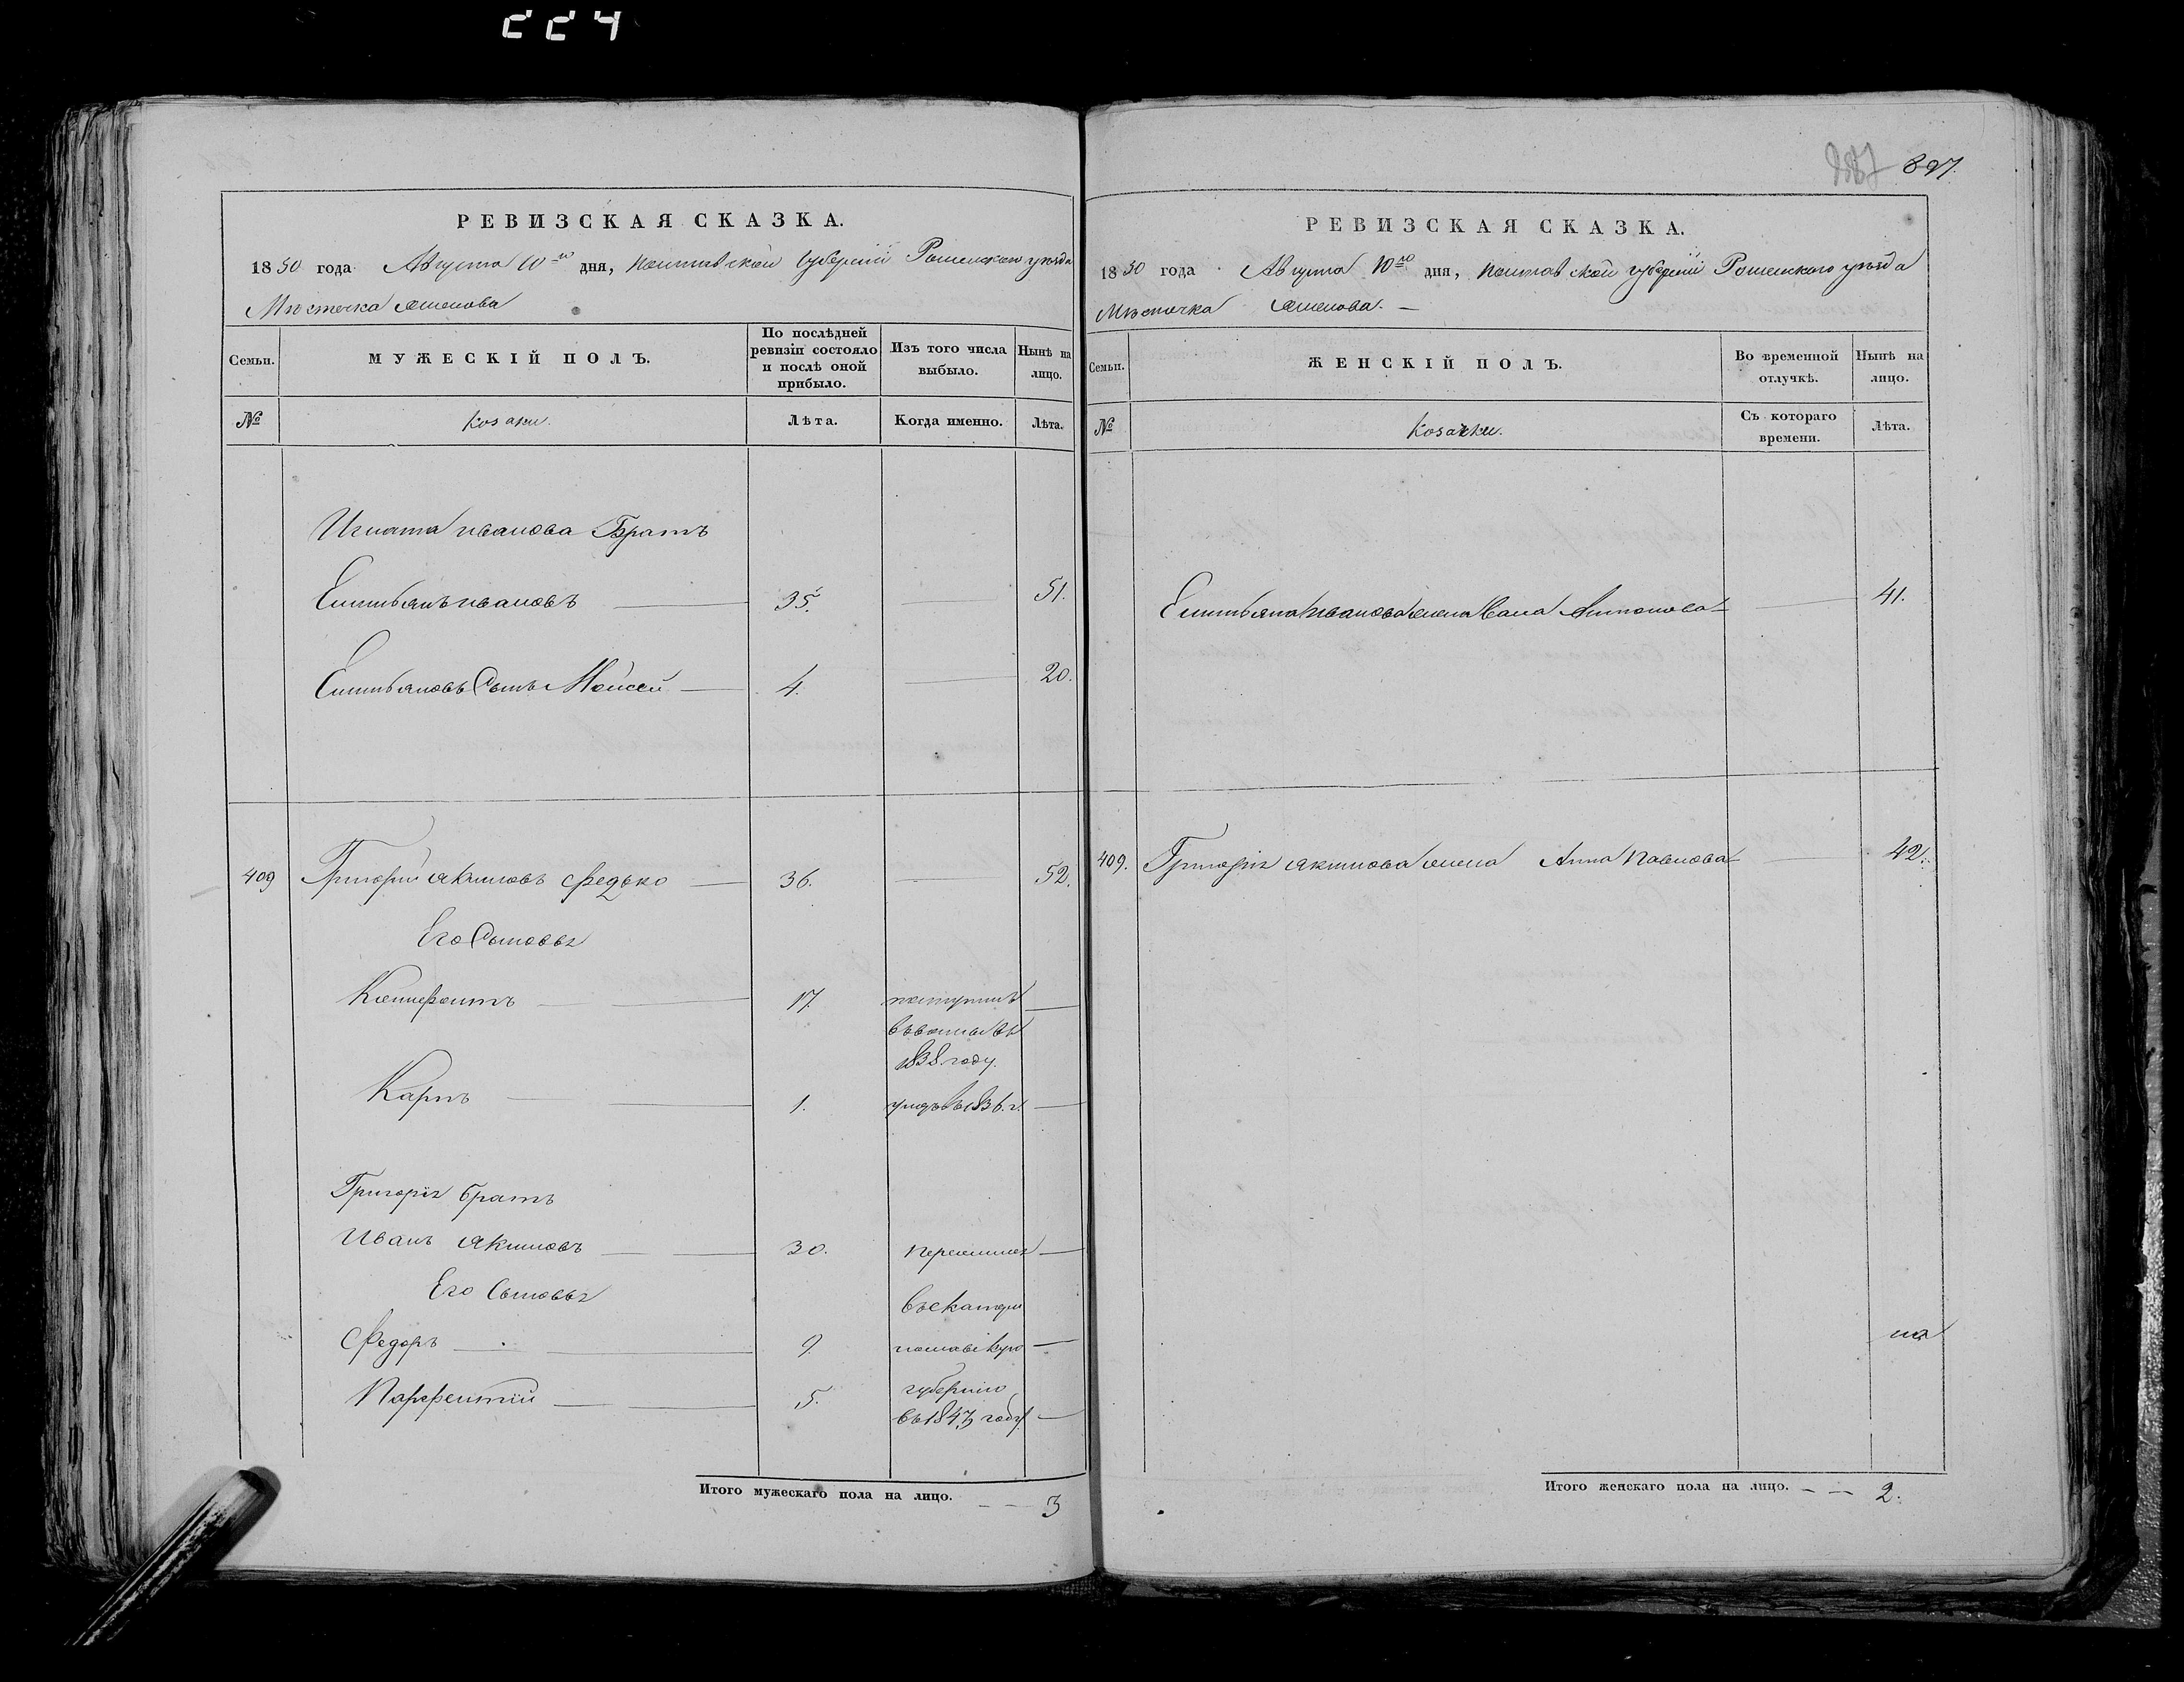 224
897.
РЕВИЗСКАЯ СКАЗКА.
1850 года Августа 10го дня, Полтавской Губерніи Роменского уѣзда
Мѣстечка
Семьи.
МУЖЕСКІЙ ПОЛЪ.
По послѣдней ревизіи состояло и послѣ оной прибыло.
Изъ того числа выбыло.
Нынѣ на лицо.
№
Козаки.
Лѣта.
Когда именно.
Лѣта.
Игната Иванова Братъ
Емельянъ Ивановъ 35. 51.
Емельяновъ Сынъ Моисей 4. 20.
409 Григорій Акимовъ Федько 36. 52.
Его Сыновья
Ксенофонтъ 17. поступилъ
1838 году.
Карпъ 1. въ 1836. г.
Григорія братъ
Иванъ Акимовъ 30.
Его Сыновья
въ Екатери
Федоръ 9. нославскую
Парфентій 5. губернію
въ 1843 году
Итого мужескаго пола на лицо. 3
РЕВИЗСКАЯ СКАЗКА.
1850 года Августа 10го дня, Полтавской губерніи Роменского уѣзда
Мѣстечка
Семьи.
ЖЕНСКІЙ ПОЛЪ.
Во временной отлучкѣ.
Нынѣ на лицо.
№
Козачки.
Съ котораго времени.
Лѣта.
Емельяна Иванова жена Антонова 41.
409. Григорія Акимова жена Анна Павлова 42.
Итого женскаго пола на лицо. 2.